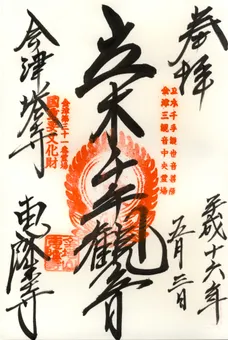 奉拝
立木千手観世音菩薩
会津三観音中央霊場
平成十六年
五月三日
立木千手観音
会津第三十一番霊場
国重要文化財
会津塔寺
恵隆寺